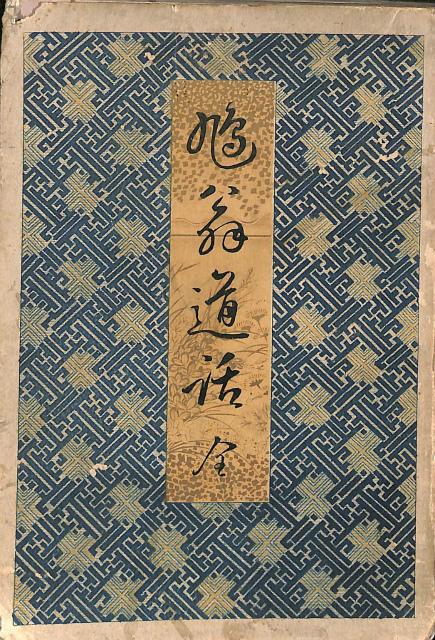 鳩翁道話 全